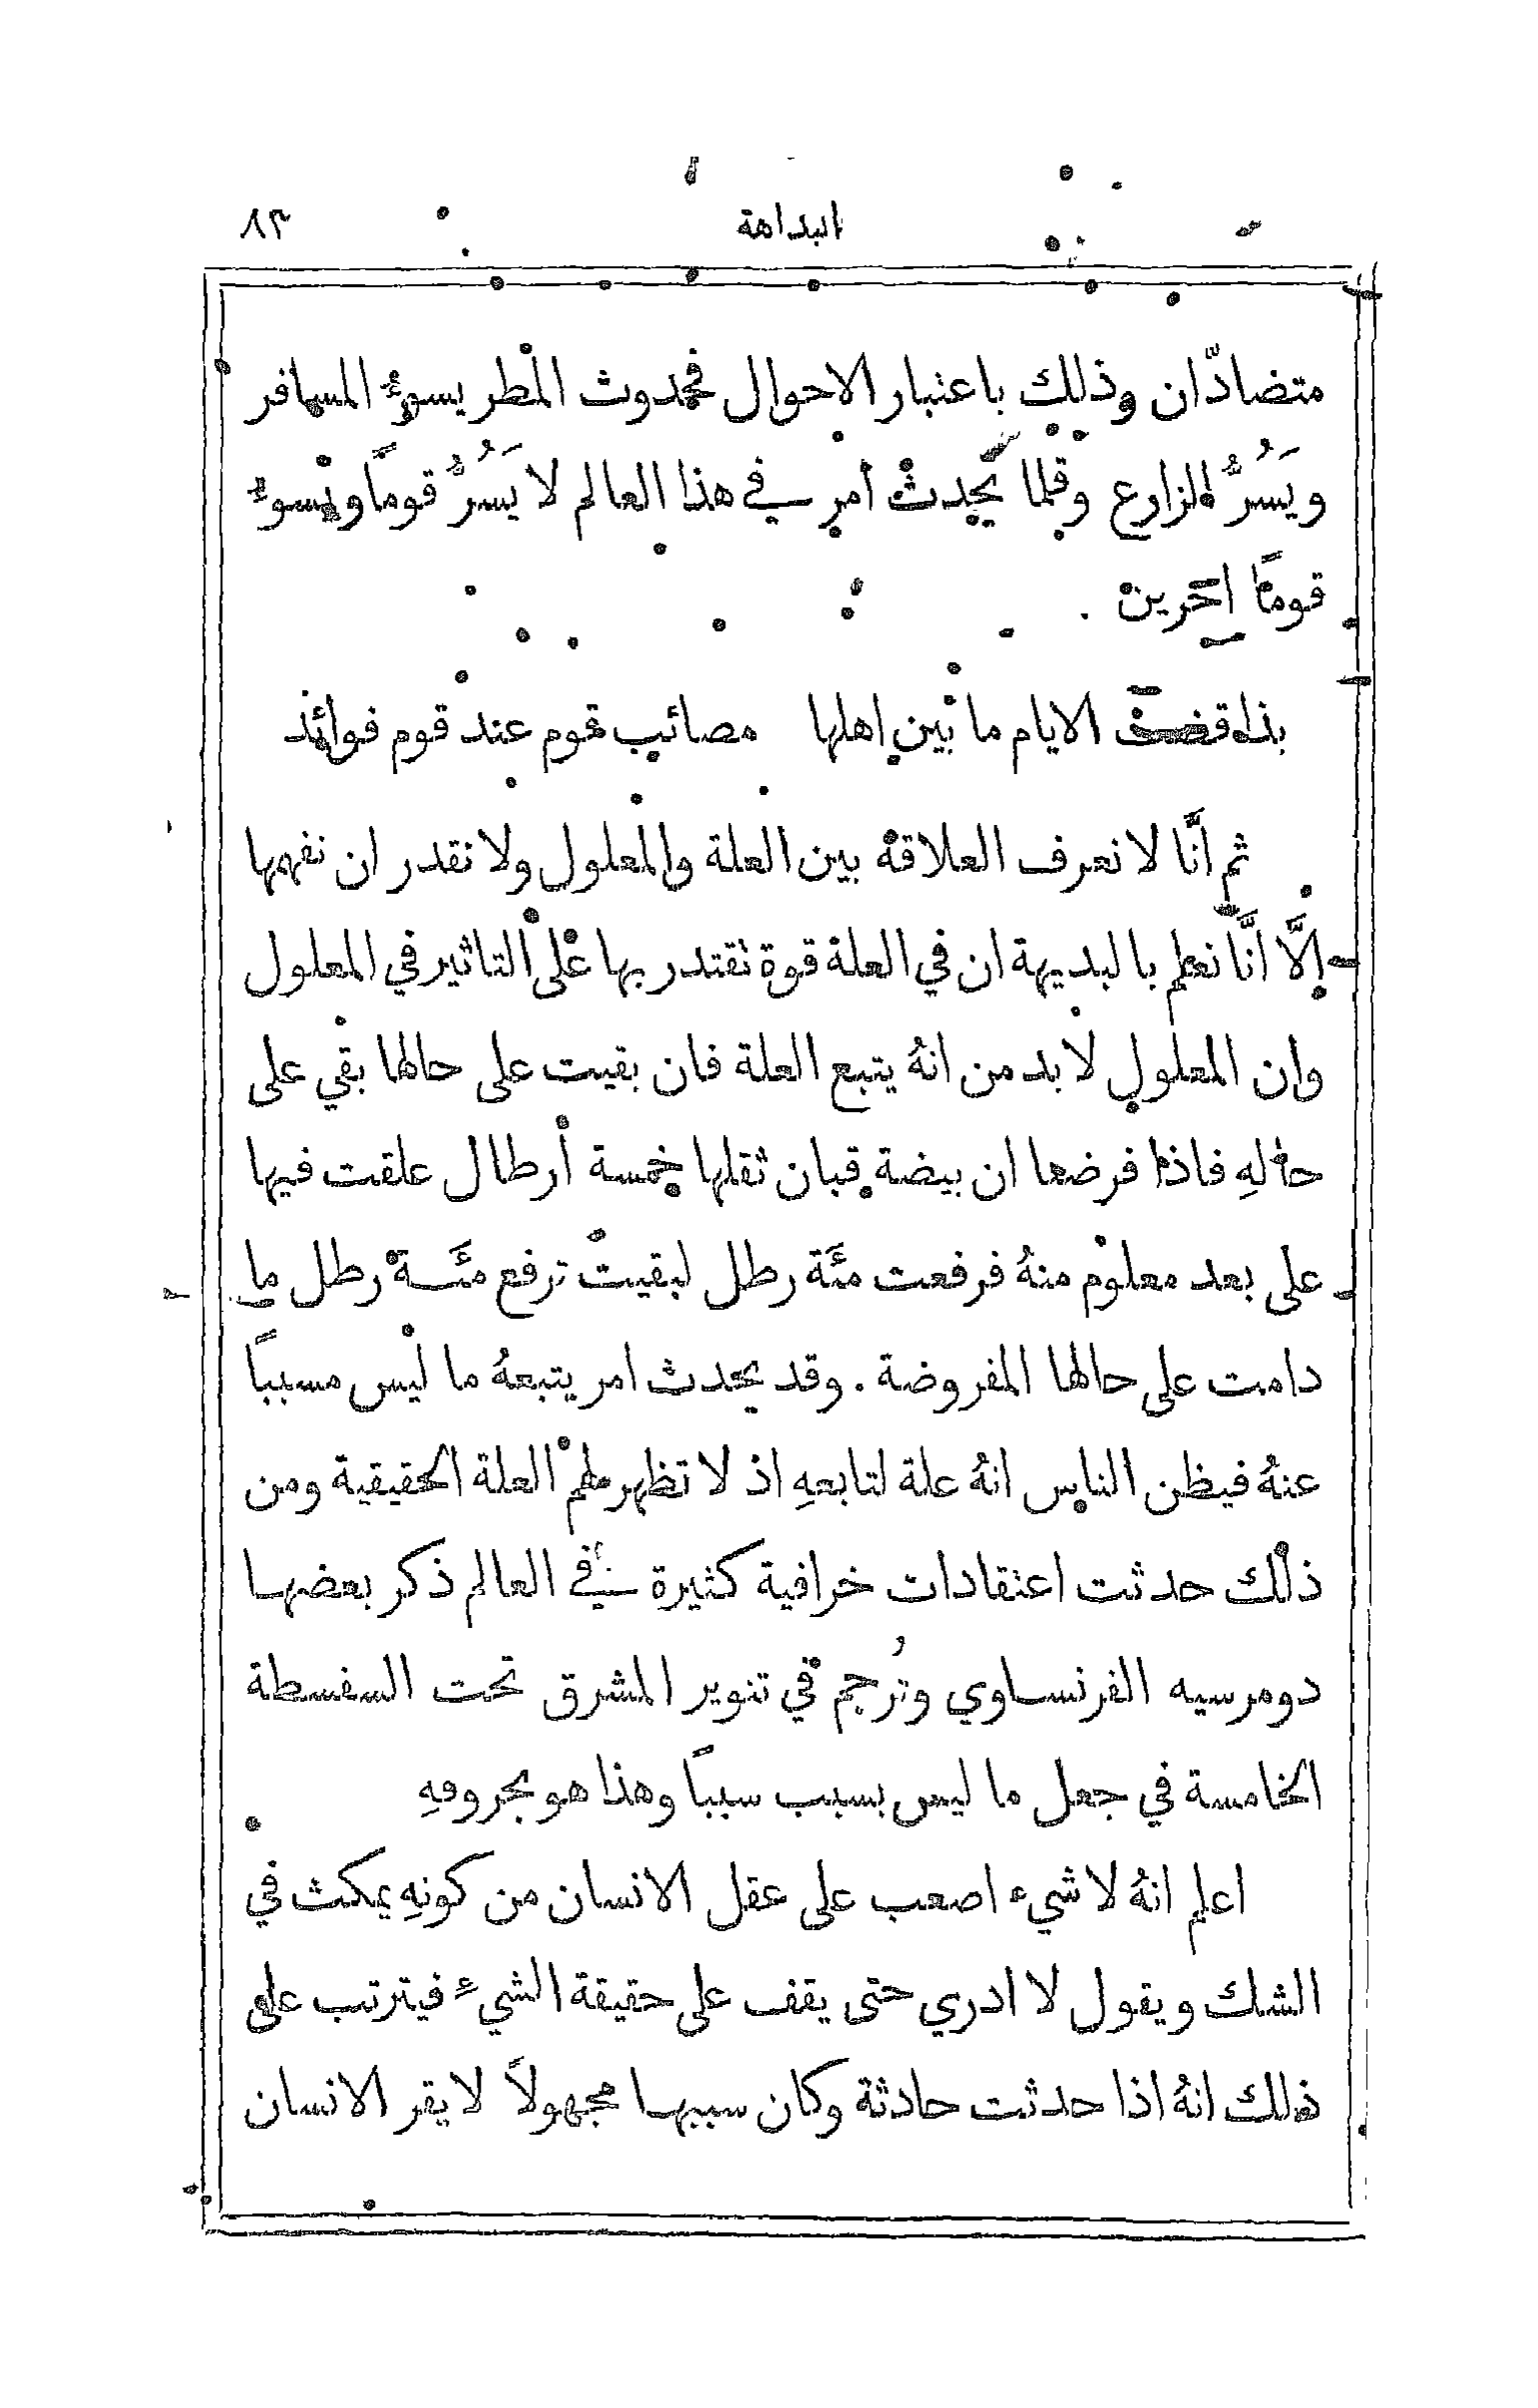 البداهة ٨٣
متضادّان وذلك باعنبار الاحوال فحدوث المطر يسوءُ المسافر
ويَسُرُّ الزارع وقلما يحدث امر في هذا العالم لا يَسُرُّ قوماً ويسوءُ
قوماً اخرين .
بذا قضت الايام ما بين اهلها مصائب قوم عند قوم فوائد
ثم انَّا لا نعرف العلاقة بين العلة والمعلول ولا نقدر ان نفهمها
إلَّا انَّا نعلم بالبديهة ان في العلة قوة نقتدر بها على التاثير في المعلول
وان المعلول لا بد من انهُ يتبع العلة فان بقيت على حالها بقي على
حالهِ فاذا فرضنا ان بيضة قبان ثقلها خمسة أرطال علقت فيها
على بعد معلوم منهُ فرفعت مئَة رطل لبقيت ترفع مئَة رطل ما
دامت على حالها المفروضة . وقد يحدث امر يتبعهُ ما ليس مسبباً
عنهُ فيظن الناس انهُ علة لتابعهِ اذ لا تظهر لهم العلة الحقيقية ومن
ذلك حدثت اعنقادات خرافية كثيرة في العالم ذكر بعضها
دومرسيه الفرنساوي وتُرجم في تنوير المشرق تحت السفسطة
الخامسة في جعل ما ليس بسبب سبباً وهذا هو بحروفهِ
اعلم انهُ لا شيء اصعب على عقل الانسان من كونهِ يمكث في
الشك ويقول لا ادري حتى يقف على حقيقة الشيءِ فيترتب على
ذلك انهُ اذا حدثت حادثة وكان سببها مجهولاً لا يقر الانسان